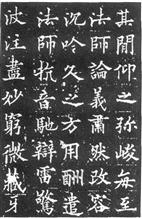 其閒仰之弥峻每至
法師論義肅然改容
沉吟久之方用酬遣
法師抗音馳辯雷驚
波注盡妙窮微藏牙